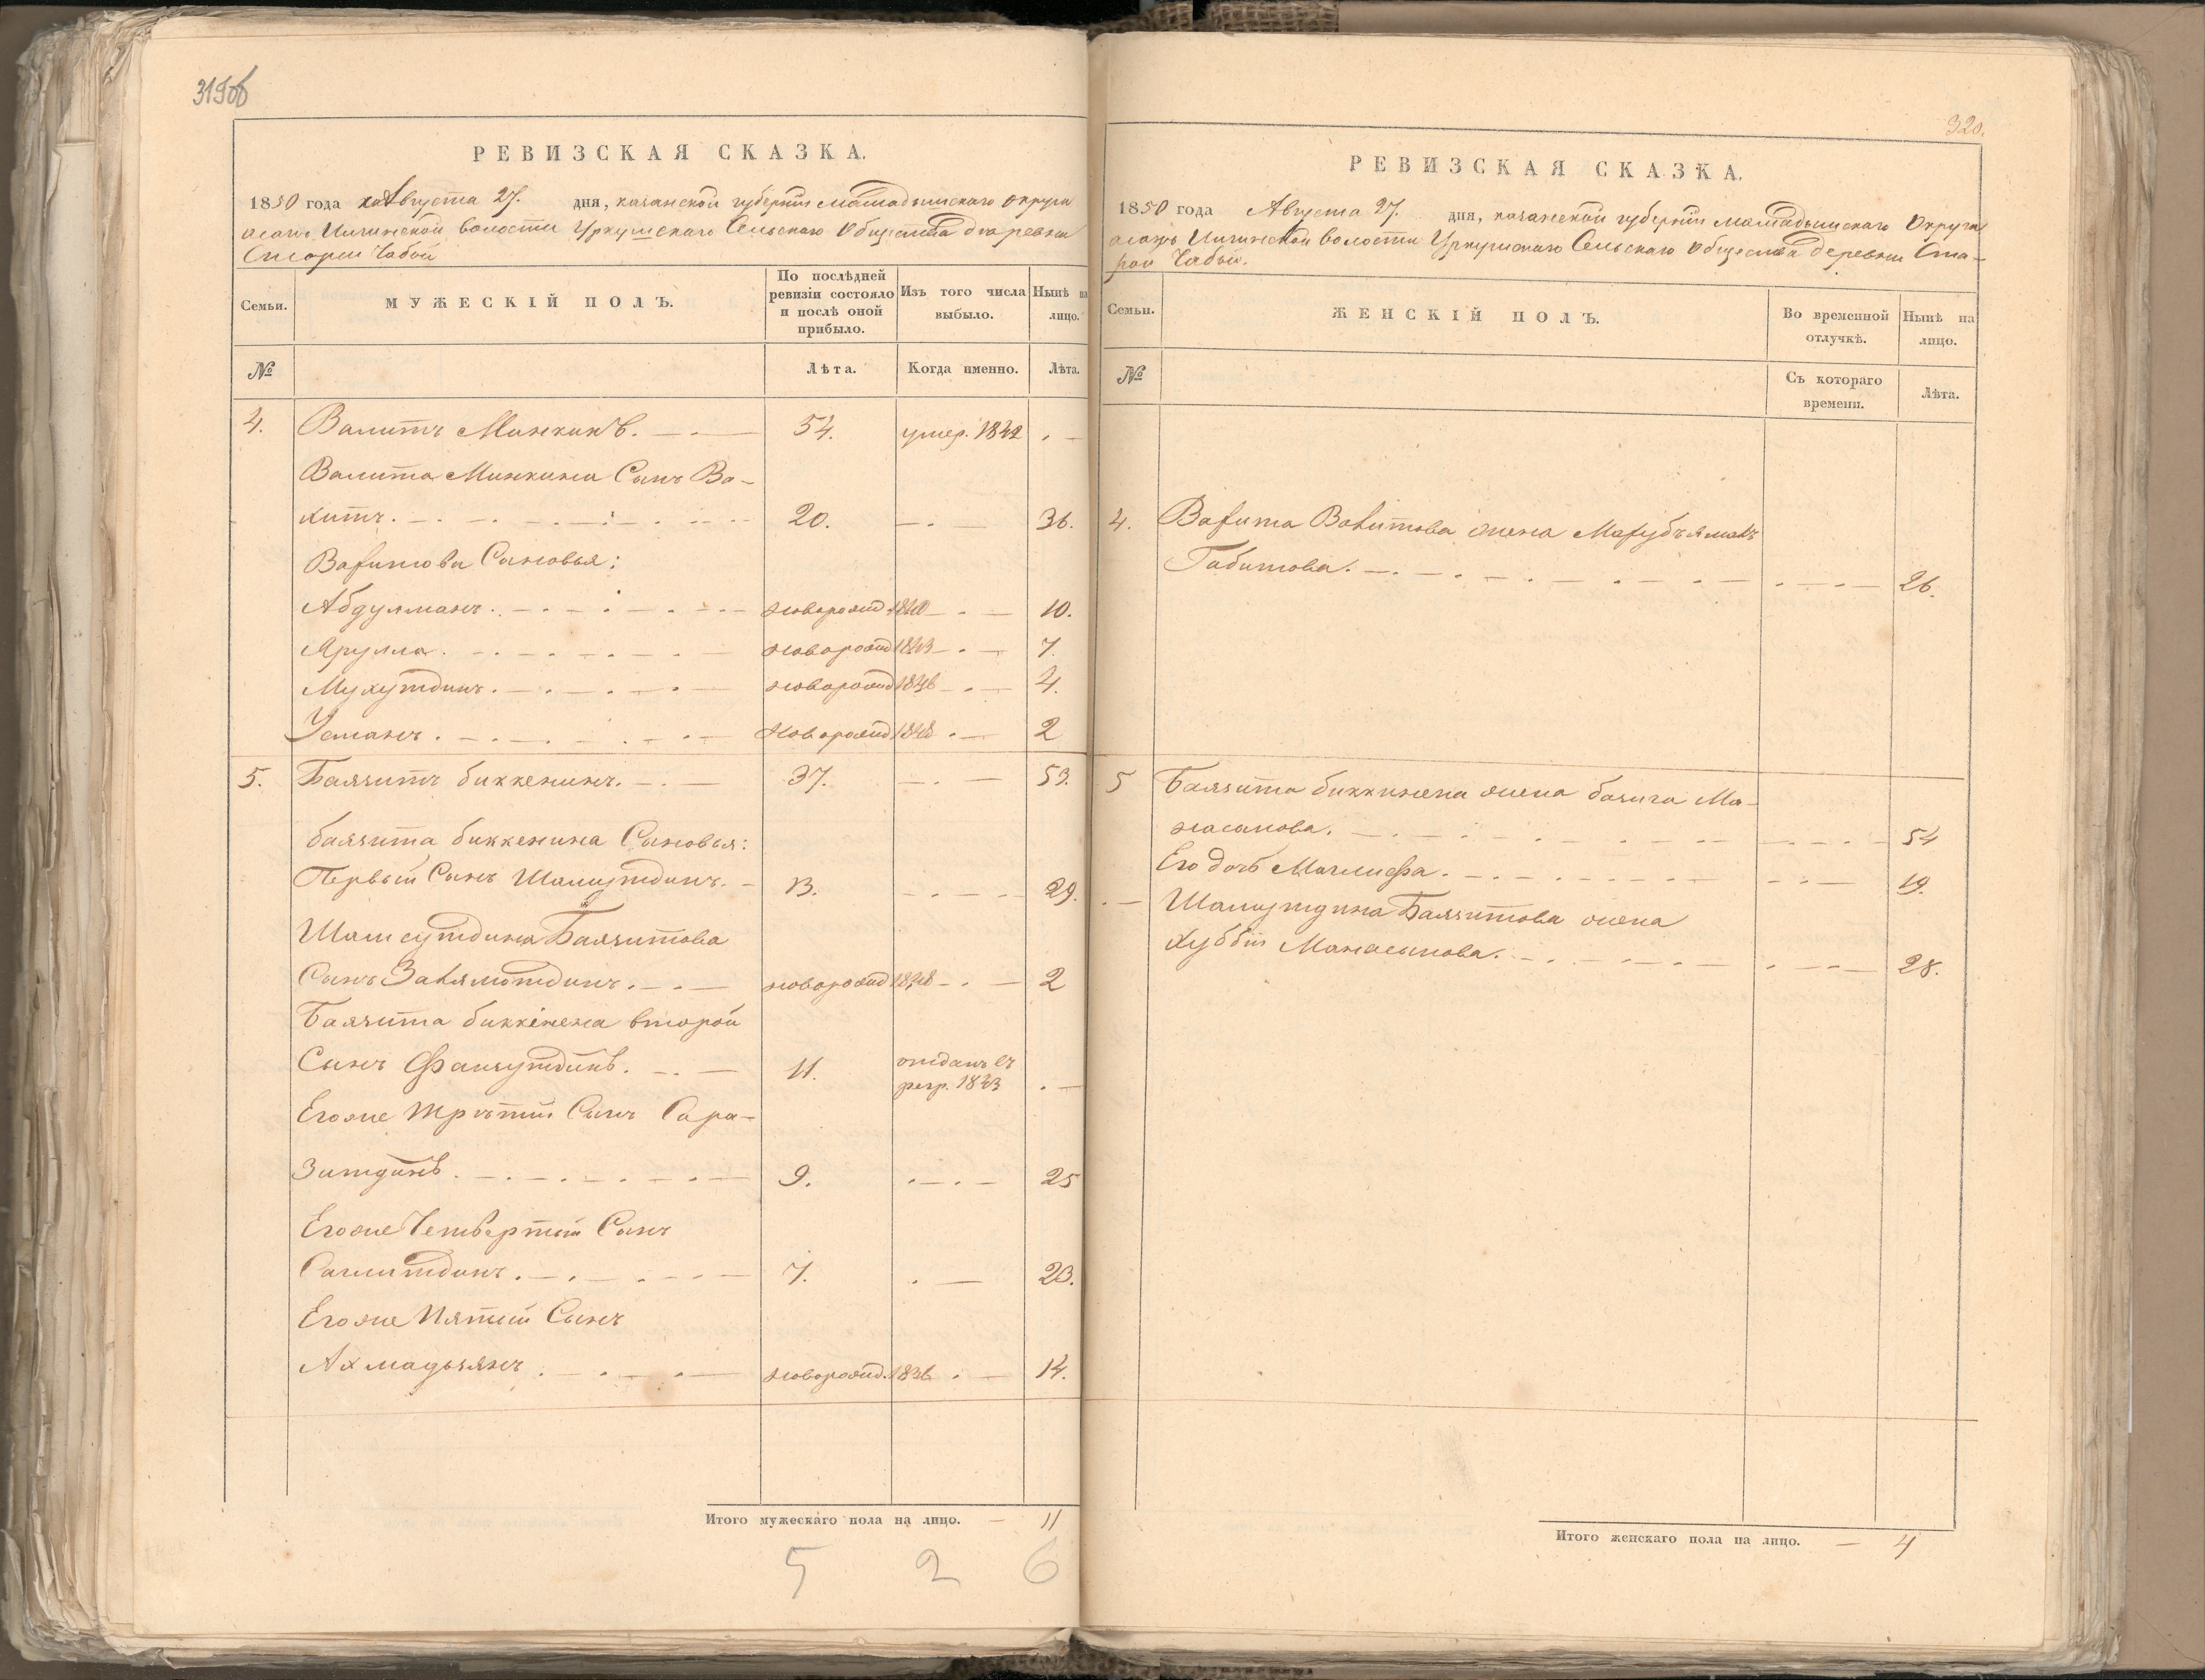 319об
РЕВИЗСКАЯ СКАЗКА.
1850 года Августа 27. дня, казанской губернiи мамадышскаго округа
Илгинской волости Уркушскаго Сельскаго Общества деревни
Старой Чабьи
Семьи. МУЖЕСКІЙ ПОЛЪ. По послѣдней ревизіи состояло и послѣ оной прибыло. Изъ того числа выбыло. Нынѣ на лицо.
№ Лѣта. Когда именно. Лѣта.
4. Валитъ Минкинъ. 54. умер. 1842
Валита Минкина Сынъ Ва-
хитъ. 20. 36.
Вахитова Сыновья:
Абдулманъ. новорожд. 1840 10.
Ярулла. новорожд 1843 7.
Мухутдинъ. новорожд 1846 4.
Усманъ. новорожд 1848 2
5. Баязитъ биккенинъ. 37. 53.
баязита биккенина Сыновья:
Первый Сынъ Шамсутдинъ. 13. 29.
Шамсутдина Баязитова
Сынъ Залямотдинъ. новорожд 1848 2
Баязита биккинена второй
Сынъ Фахрутдинъ. 11. отданъ въ
рекр. 1843
Егоже третiй Сынъ Сара-
зитдинъ. 9. 25
Егоже Четвертый Сынъ
Саглитдинъ. 7. 23.
Егоже Пятый Сынъ
Ахмадьзянъ новорожд. 1836 14.
Итого мужескаго пола на лицо. — 11
5 2 6
320.
РЕВИЗСКАЯ СКАЗКА.
1850 года Августа 27. дня, казанской губернiи мамадышскаго Округа
Илгинской волости Уркушскаго Сельскаго Общества деревни Ста-
рой Чабьи.
Семьи. ЖЕНСКІЙ ПОЛЪ. Во временной отлучкѣ. Нынѣ на лицо.
№ Съ котораго времени. Лѣта.
4. Вахита Валитова жена Махубъямалъ
Габитова. 26.
5 Баязита биккинена жена базига Ма-
насыпова. 54
Его дочь Маглифа. 19.
Шамсутдина Баязитова жена
Хуббiй Манасыпова. 28.
Итого женскаго пола на лицо. — 4